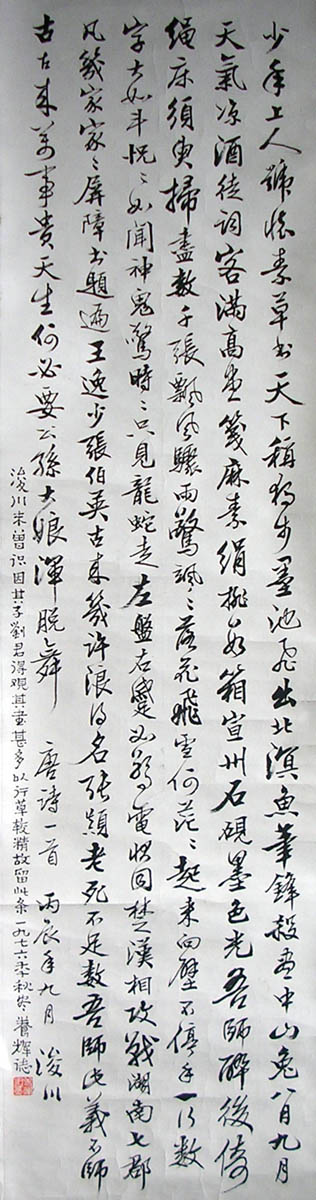 少年上人號懷素草书天下稱獨步墨池飛出北溟魚筆鋒殺盡中山兔八月九月
天氣凉酒徒詞客滿高堂箋麻素絹排數箱宣州石硯墨色光吾師醉後倚
繩床須臾掃盡數千張飄風驟雨驚颯〻落花飛雪何茫〻起来向壁不停手一行數
字大如斗恍〻如聞神鬼驚時〻只見龍蛇走左盤右蹙如驚電狀同楚漢相攻戰湖南七郡
凡幾家家〻屏障书題遍王逸少張伯英古来幾許浪得名張顛老死不足數吾師此義不師
古古来萬事貴天生何必要公孫大娘渾脫舞 唐詩一首 丙辰年九月 浚川
浚川未曾識因其子劉君得觀其書甚多以行草較精故留此条一九七六年秋 養輝誌